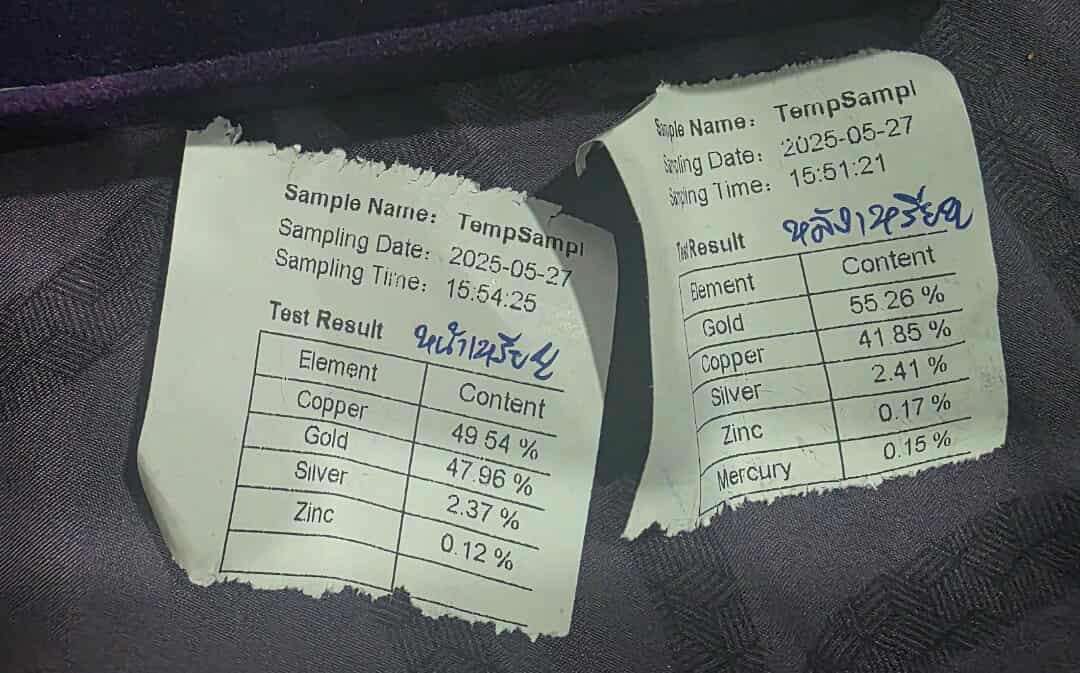 Sample Name: TempSampl
Sampling Date: 2025-05-27
Sampling Time: 15:54:25
Test Result หน้าเหรียญ
Element Content
Copper 49.54 %
Gold 47.96 %
Silver 2.37 %
Zinc 0.12 %
Sample Name: TempSampl
Sampling Date: 2025-05-27
Sampling Time: 15:51:21
Test Result หลังเหรียญ
Element Content
Gold 55.26 %
Copper 41.85 %
Silver 2.41 %
Zinc 0.17 %
Mercury 0.15 %